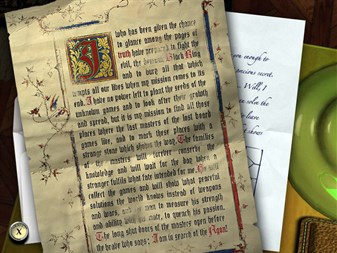 who has been given the chance
to glance among the pages of
truth have prepared to fight the
evil, the Black King
and to burn all that which
tempts all our lives when my mission comes to its
end. I have no power left to plant the seeds of the
unknown games and to look after their growth
and spread, but it is my mission to find all these
places where the last masters of the lost board
games live, and to mark these places with a
strange stone which shows the way. The families
of the masters will further inherit the
knowledge and will wait for the day when a
stranger fulfils what fate intended for me. He will
collect the games and will show what powerful
solutions the world knows instead of weapons
and wars, and use to measure his strength
and ability with his mate, to quench his passion.
The long shut doors of the masters open before
the brave who says: I am in search of the Agon!
enough to
precious secret.
Will, I
solve the
learn
shows
x